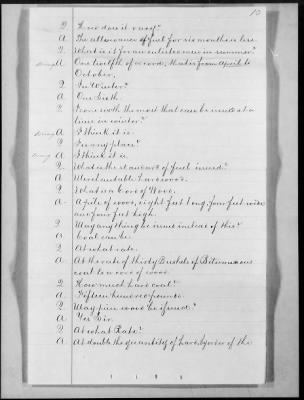 10
Q How does it vary?
A The allowance of fuel for six months is less.
Q What is it for an enlisted man in summer?
wrong A One twelfth of a cord, that is from April to
October.
Q In Winter?
A One Sixth.
Q Is one sixth the most that can be issued at a
time in winter?
wrong A I think it is.
Q In any place?
wrong A I think it is.
Q What is the standard of fuel issued?
A Merchantable hard wood.
Q What is a Cord of Wood.
A A pile of wood, eight feet long, four feet wide
and four feet high.
Q May anything be issued instead of this?
A Coal can be.
Q At what rate.
A At the rate of thirty Bushels of Bituminous
coal to a cord of wood.
Q How much hard coal?
A Fifteen hundred pounds.
Q May pine wood be issued?
A Yes Sir.
Q At what Rate?
A At double the quantity of hard, by order of the
1195